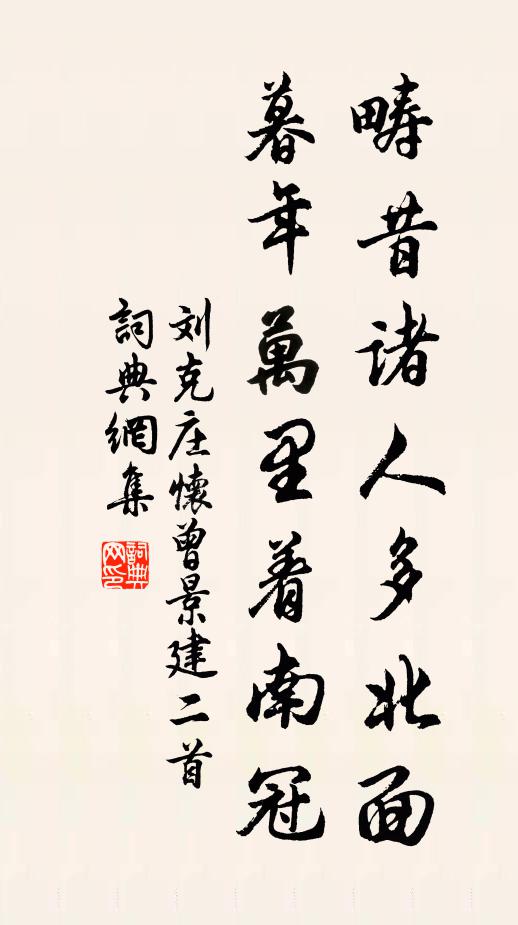 畴昔诸人多北面
暮年萬里着南冠
刘克庄懷曾景建二首
詞典網集
詞典
网印